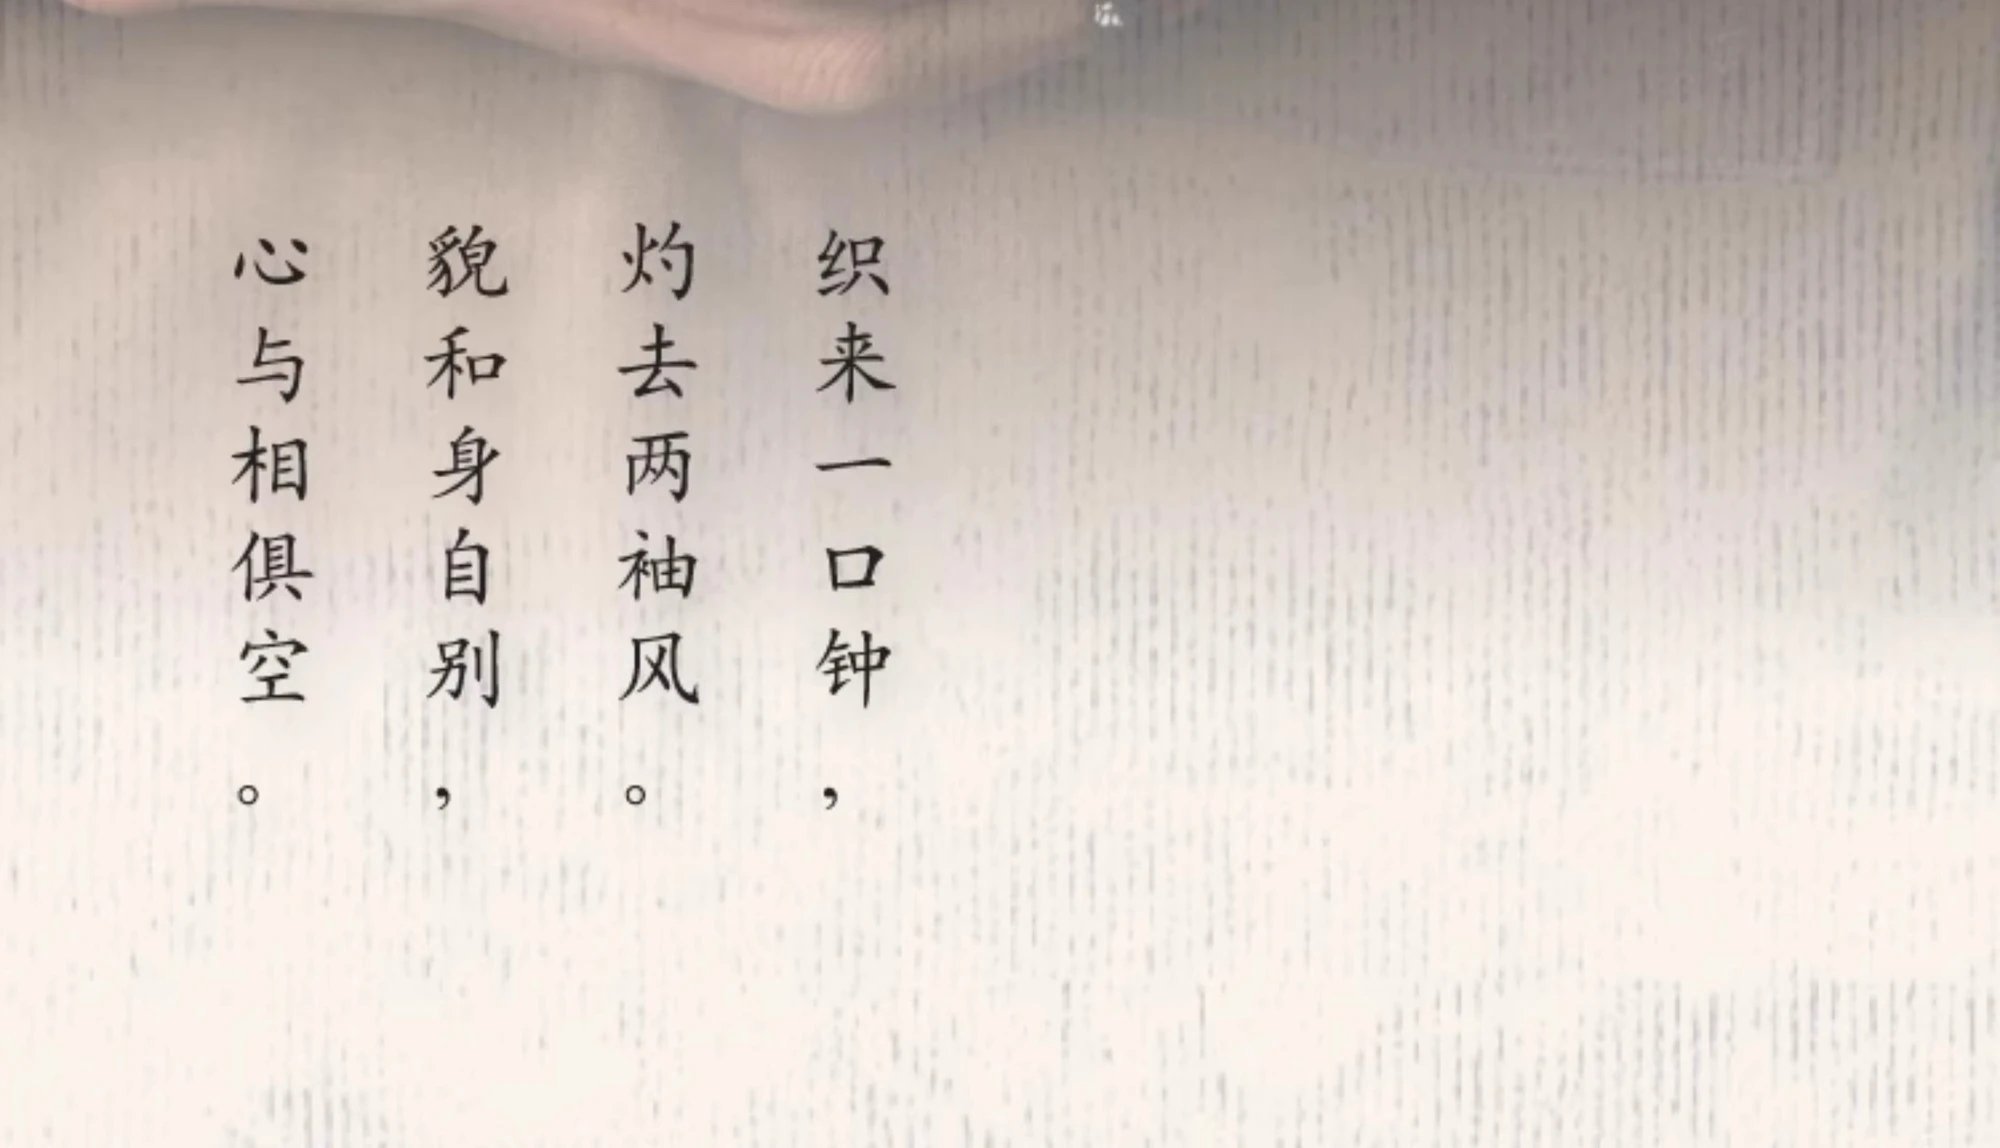 织来一口钟，
灼去两袖风。
貌和身自别，
心与相俱空。